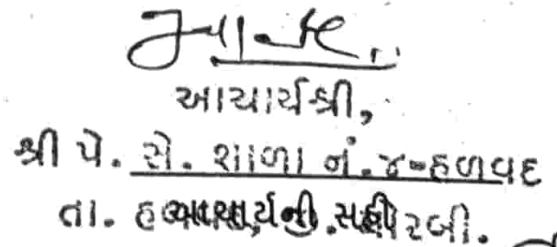 આચાર્યશ્રી,
શ્રી પે. સે. શાળા નં.૪-હળવદ
તા. હ આચાર્યની સહી રબી.